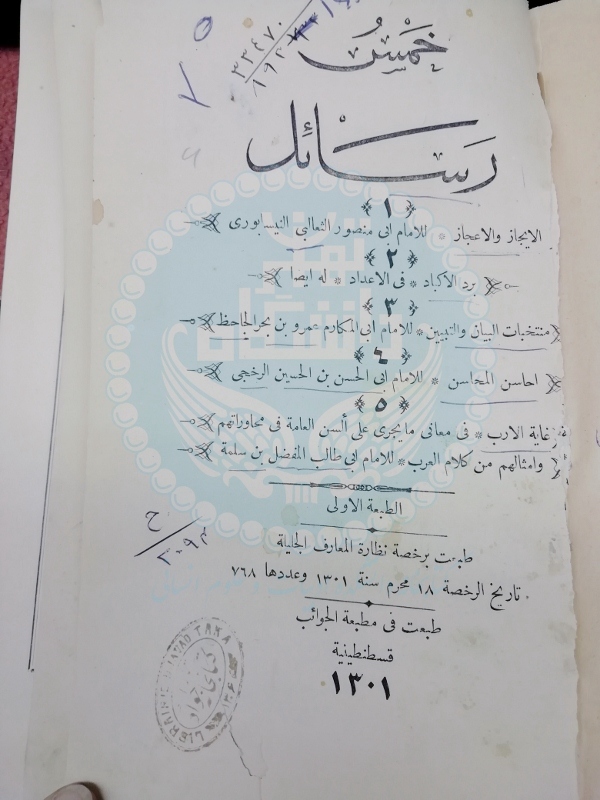 ٣٣٤٧٠
خمس
رسائل
﴿ ١ ﴾
الايجاز والاعجاز * للامام ابى منصور الثعالبي النيسابورى
﴿ ٢ ﴾
برد الأكباد * فى الاعداد * له ايضا
﴿ ٣ ﴾
منتخبات البيان والتبيين * للامام ابى المكارم عمرو بن بحر الجاحظ
﴿ ٤ ﴾
احاسن المحاسن * للامام ابى الحسن بن الحسين الرخجى
﴿ ٥ ﴾
غاية الارب * فى معانى ما يجرى على ألسن العامة فى محاوراتهم
وامثالهم من كلام العرب * للامام ابى طالب المفضل بن سلمة
الطبعة الاولى
طبعت برخصة نظارة المعارف الجليلة
تاريخ الرخصة ١٨ محرم سنة ١٣٠١ وعددها ٧٦٨
طبعت فى مطبعة الجوائب
قسطنطينية
١٣٠١
ح
٢٠٩٣